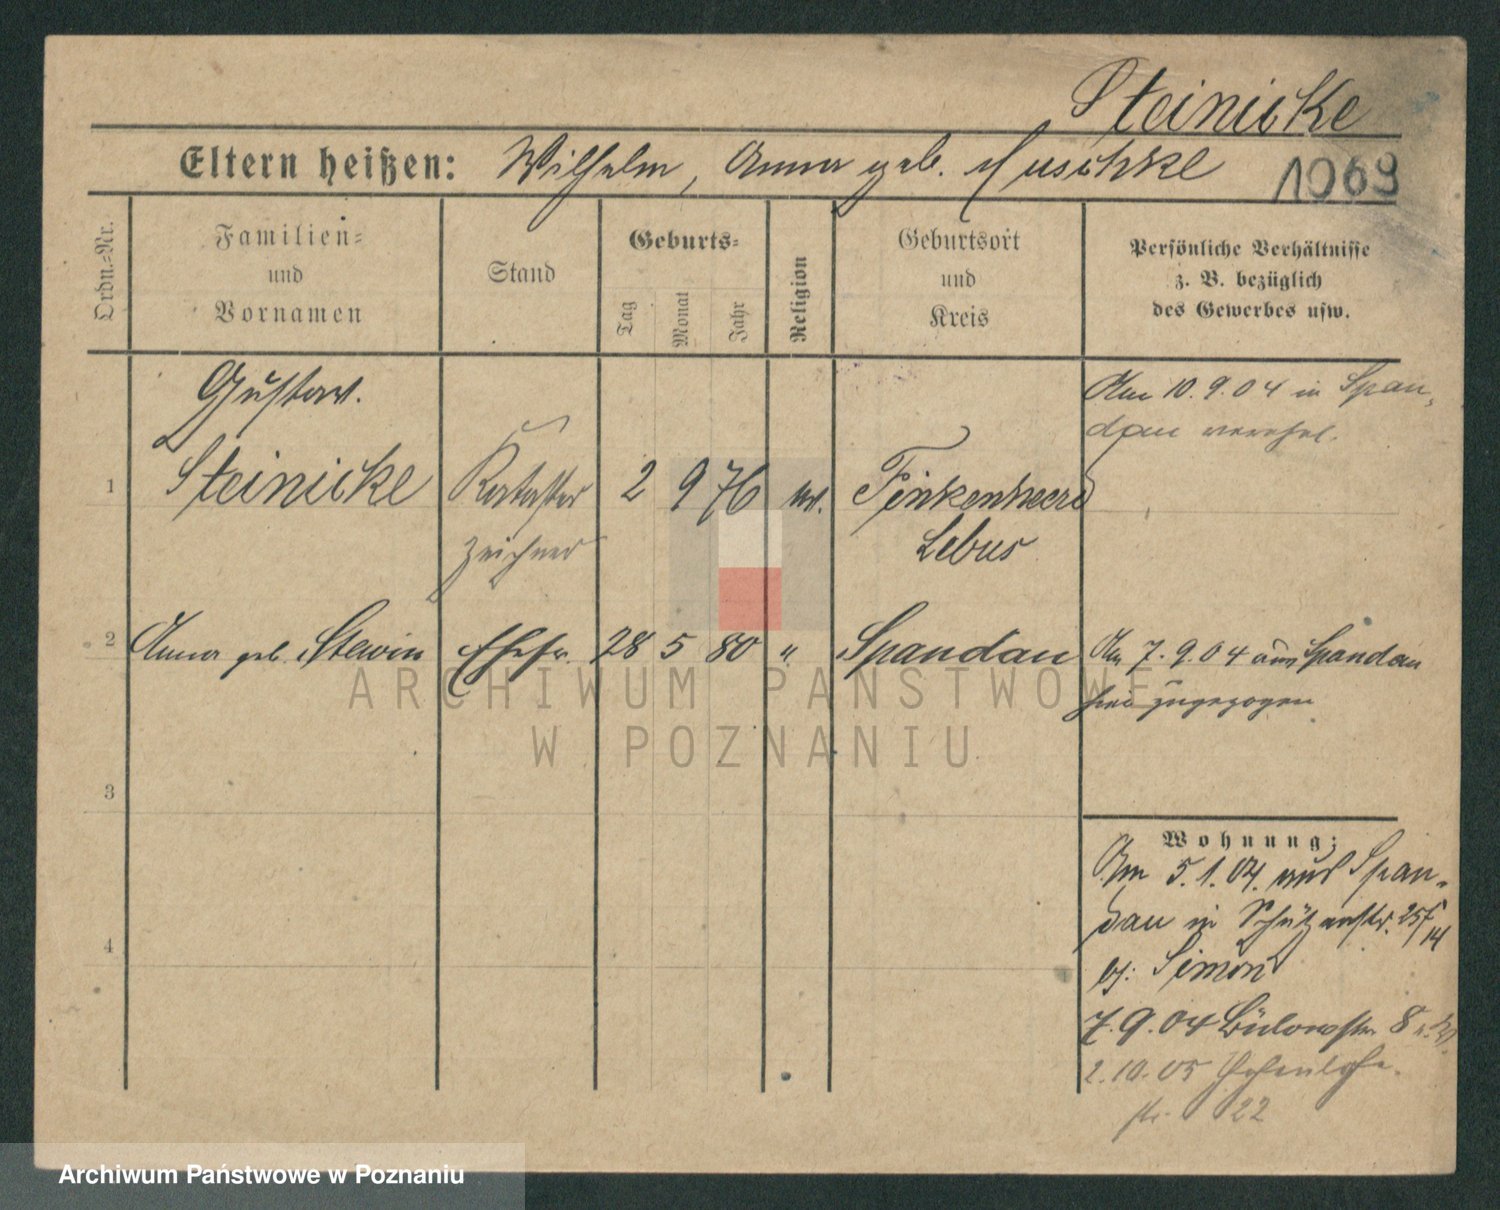 Steinicke
Eltern heißen: Wilhelm, Anna geb. Muschke
1069
Ordn.-Nr.
Familien-
und
Vornamen
Stand
Geburts-
Tag
Monat
Jahr
Religion
Geburtsort
und
Kreis
Persönliche Verhältnisse
z. B. bezüglich
des Gewerbes usw.
Gustav.
1 Steinicke Kataster 2 9 76 ev. Finkenheerd
zeichner Lebus
Am 10.9.04 in Span-
dau verehel.
2 Anna geb. Ehefr. 28 5 80 " Spandau Am 7.9.04 aus Spandau
hier zugezogen
3
4
Wohnung:
Am 5.1.04. aus Span-
dau in Schützenstr. 25
14
bj. Simon
7.9.04 Bülowstr 8
2.10.05 Hohenlohe-
str. 22
ARCHIWUM PAŃSTWOWE
W POZNANIU
Archiwum Państwowe w Poznaniu